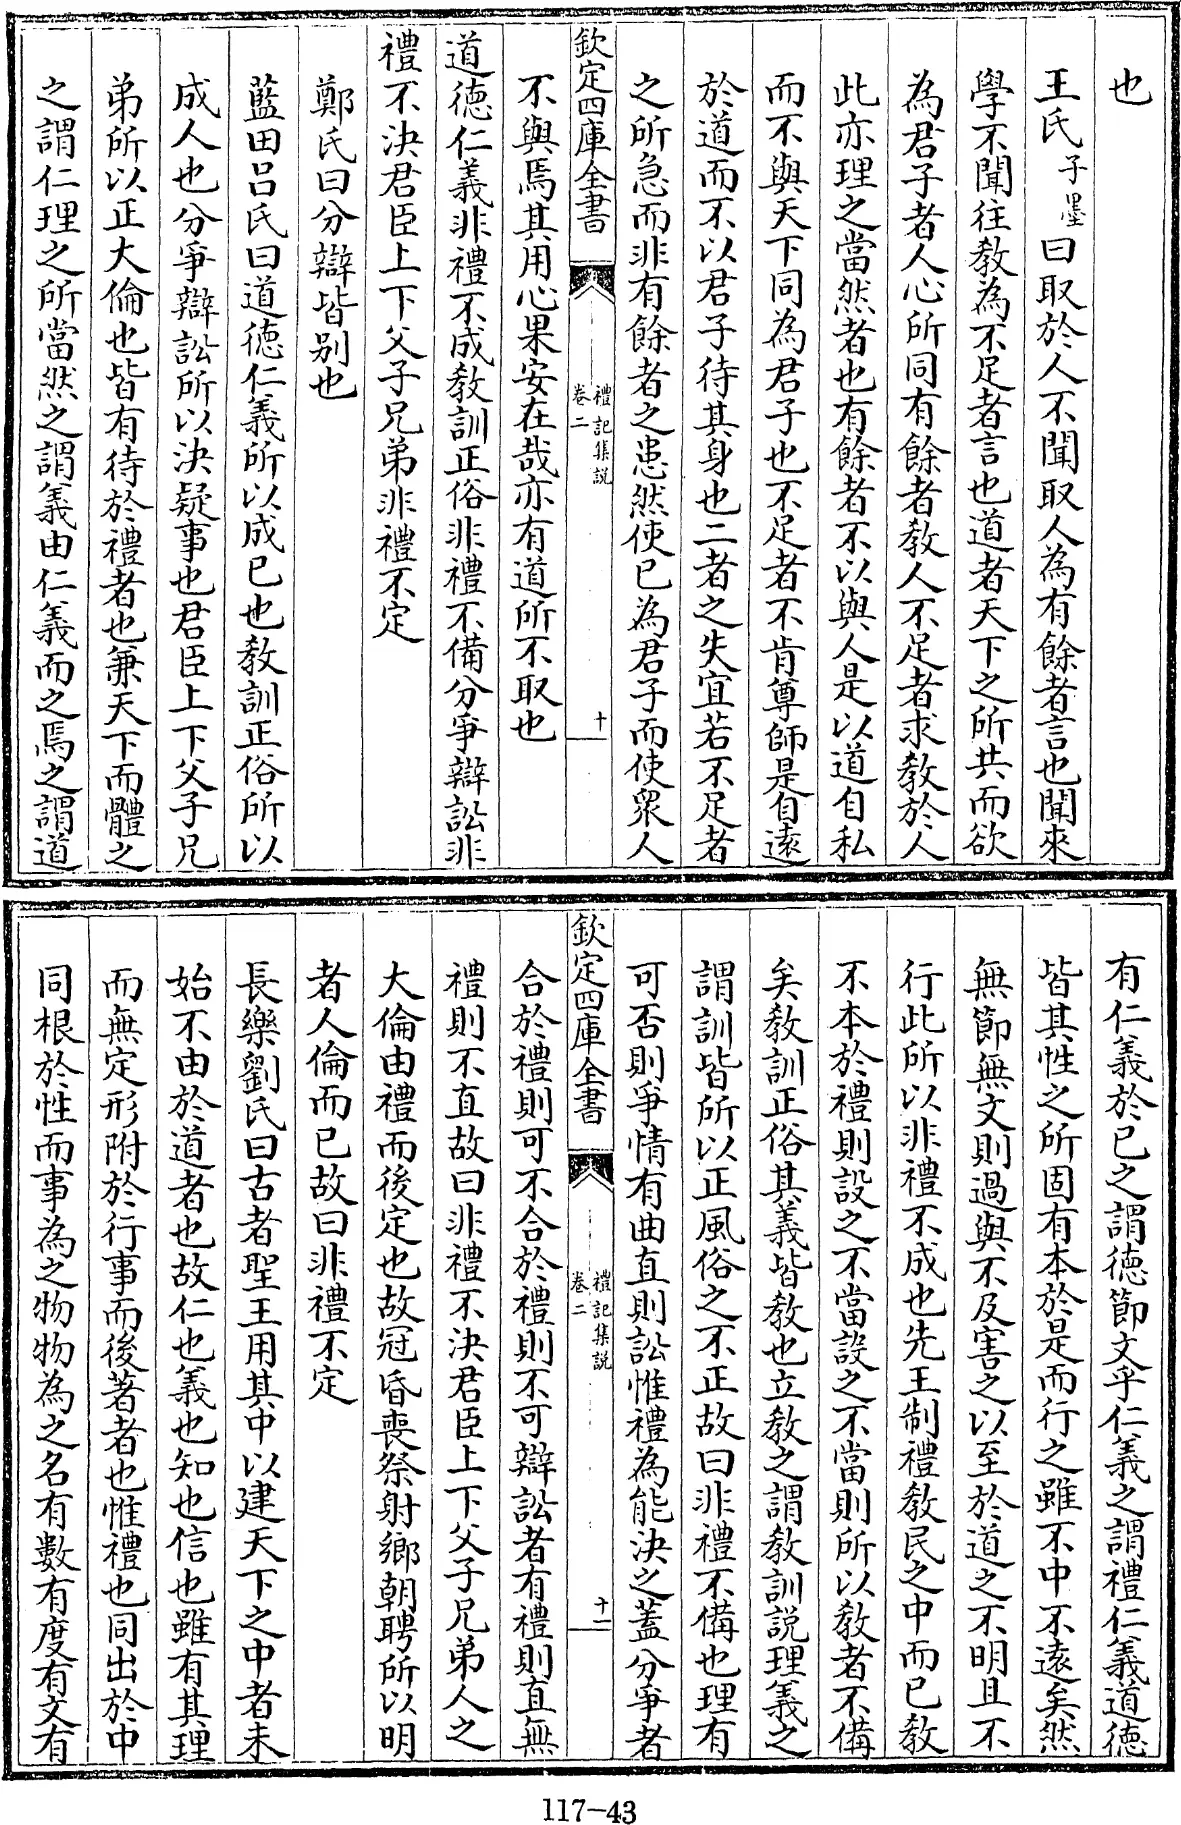 也
王氏子墨曰取於人不聞取人為有餘者言也聞來
學不聞往教為不足者言也道者天下之所共而欲
為君子者人心所同有餘者教人不足者求教於人
此亦理之當然者也有餘者不以與人是以道自私
而不與天下同為君子也不足者不肯尊師是自遠
於道而不以君子待其身也二者之失宜若不足者
之所急而非有餘者之患然使已為君子而使衆人
欽定四庫全書
禮記集說
卷二
十
不與焉其用心果安在哉亦有道所不取也
道徳仁義非禮不成教訓正俗非禮不備分爭辯訟非
禮不決君臣上下父子兄弟非禮不定
鄭氏曰分辯皆别也
藍田吕氏曰道徳仁義所以成已也教訓正俗所以
成人也分爭辯訟所以決疑事也君臣上下父子兄
弟所以正大倫也皆有待於禮者也兼天下而體之
之謂仁理之所當然之謂義由仁義而之焉之謂道
有仁義於已之謂徳節文乎仁義之謂禮仁義道徳
皆其性之所固有本於是而行之雖不中不遠矣然
無節無文則過與不及害之以至於道之不明且不
行此所以非禮不成也先王制禮教民之中而已教
不本於禮則設之不當設之不當則所以教者不備
矣教訓正俗其義皆教也立教之謂教訓説理義之
謂訓皆所以正風俗之不正故曰非禮不備也理有
可否則爭情有曲直則訟惟禮為能決之蓋分爭者
欽定四庫全書
禮記集說
卷二
十一
合於禮則可不合於禮則不可辯訟者有禮則直無
禮則不直故曰非禮不決君臣上下父子兄弟人之
大倫由禮而後定也故冠昏喪祭射鄉朝聘所以明
者人倫而已故曰非禮不定
長樂劉氏曰古者聖王用其中以建天下之中者未
始不由於道者也故仁也義也知也信也雖有其理
而無定形附於行事而後著者也惟禮也同出於中
同根於性而事為之物物為之名有數有度有文有
117-43